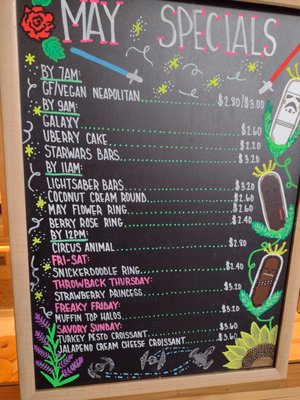 MAY SPECIALS
BY 7AM:
GF/VEGAN NEAPOLITAN $2.80/$3.00
BY 9AM:
GALAXY $2.60
UBERRY CAKE $2.20
STARWARS BARS $3.20
BY 11AM:
LIGHTSABER BARS $3.20
COCONUT CREAM ROUND $2.60
MAY FLOWER RING $2.60
BERRY ROSE RING $2.40
BY 12PM:
CIRCUS ANIMAL $2.80
FRI-SAT:
SNICKERDOODLE RING $2.40
THROWBACK THURSDAY:
STRAWBERRY PRINCESS $3.20
FREAKY FRIDAY:
MUFFIN TOP HALOS $3.20
SAVORY SUNDAY:
TURKEY PESTO CROISSANT $3.60
JALAPENO CREAM CHEESE CROISSANT $3.60